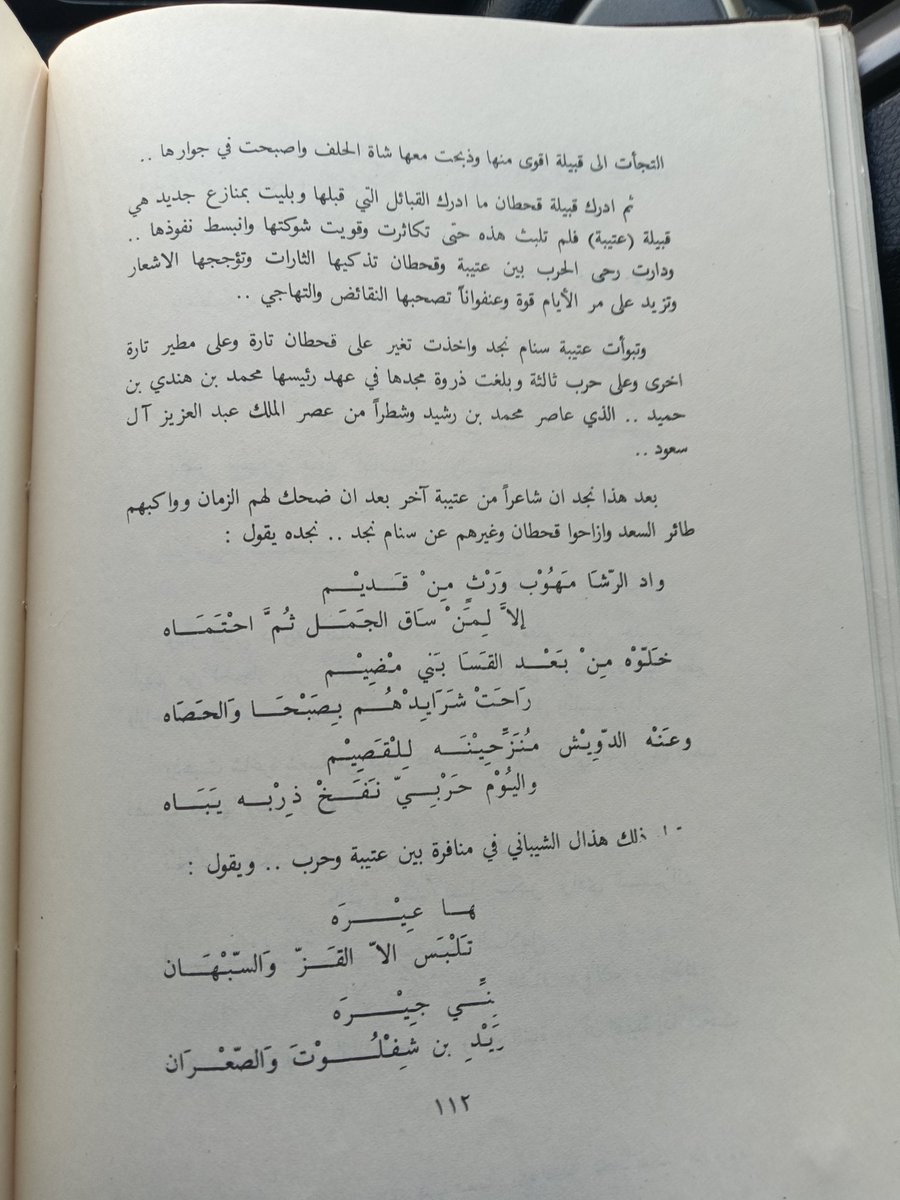 التجأت الى قبيلة اقوى منها وذبحت معها شاة الحلف واصبحت في جوارها ..
ثم ادرك قبيلة قحطان ما ادرك القبائل التي قبلها وبليت بمنازع جديد هي
قبيلة (عتيبة) فلم تلبث هذه حتى تكاثرت وقويت شوكتها وانبسط نفوذها ..
ودارت رحى الحرب بين عتيبة وقحطان تذكيها الثارات وتؤججها الاشعار
وتزيد على مر الأيام قوة وعنفواناً تصحبها النقائض والتهاجي ..
وتبوأت عتيبة سنام نجد واخذت تغير على قحطان تارة وعلى مطير تارة
اخرى وعلى حرب ثالثة وبلغت ذروة مجدها في عهد رئيسها محمد بن هندي بن
حميد .. الذي عاصر محمد بن رشيد وشطراً من عصر الملك عبد العزيز آل
سعود ..
بعد هذا نجد ان شاعراً من عتيبة آخر بعد ان ضحك لهم الزمان وواكبهم
طائر السعد وازاحوا قحطان وغيرهم عن سنام نجد .. نجده يقول :
واد الرّشَا مَهَوْب وَرْثٍ مِنْ قَدِيْم
إلاَّ لِمَنْ سَاق الجَمَل ثُمَّ احْتَمَاه
خَلَّوْه مِنْ بَعْد القَسَا بَني مْضِيْم
رَاحَتْ شَرَايِدْهُم بِصَبْحَا وَالحَصَاه
وعَنْه الدّوِيْش مْنَزِّحِيْنَه لِلْقَصِيْم
واليُوْمْ حَرْبِيّ نَفَخْ ذِرْبه يَبَاه
ذلك هذال الشيباني في منافرة بين عتيبة وحرب .. ويقول :
عِيْرَه
تَلْبَس الاّ القَزّ وَالسّبْهَان
جِيْرَه
بن شَفْلُوْتَ وَالصّعْرَان
١١٢